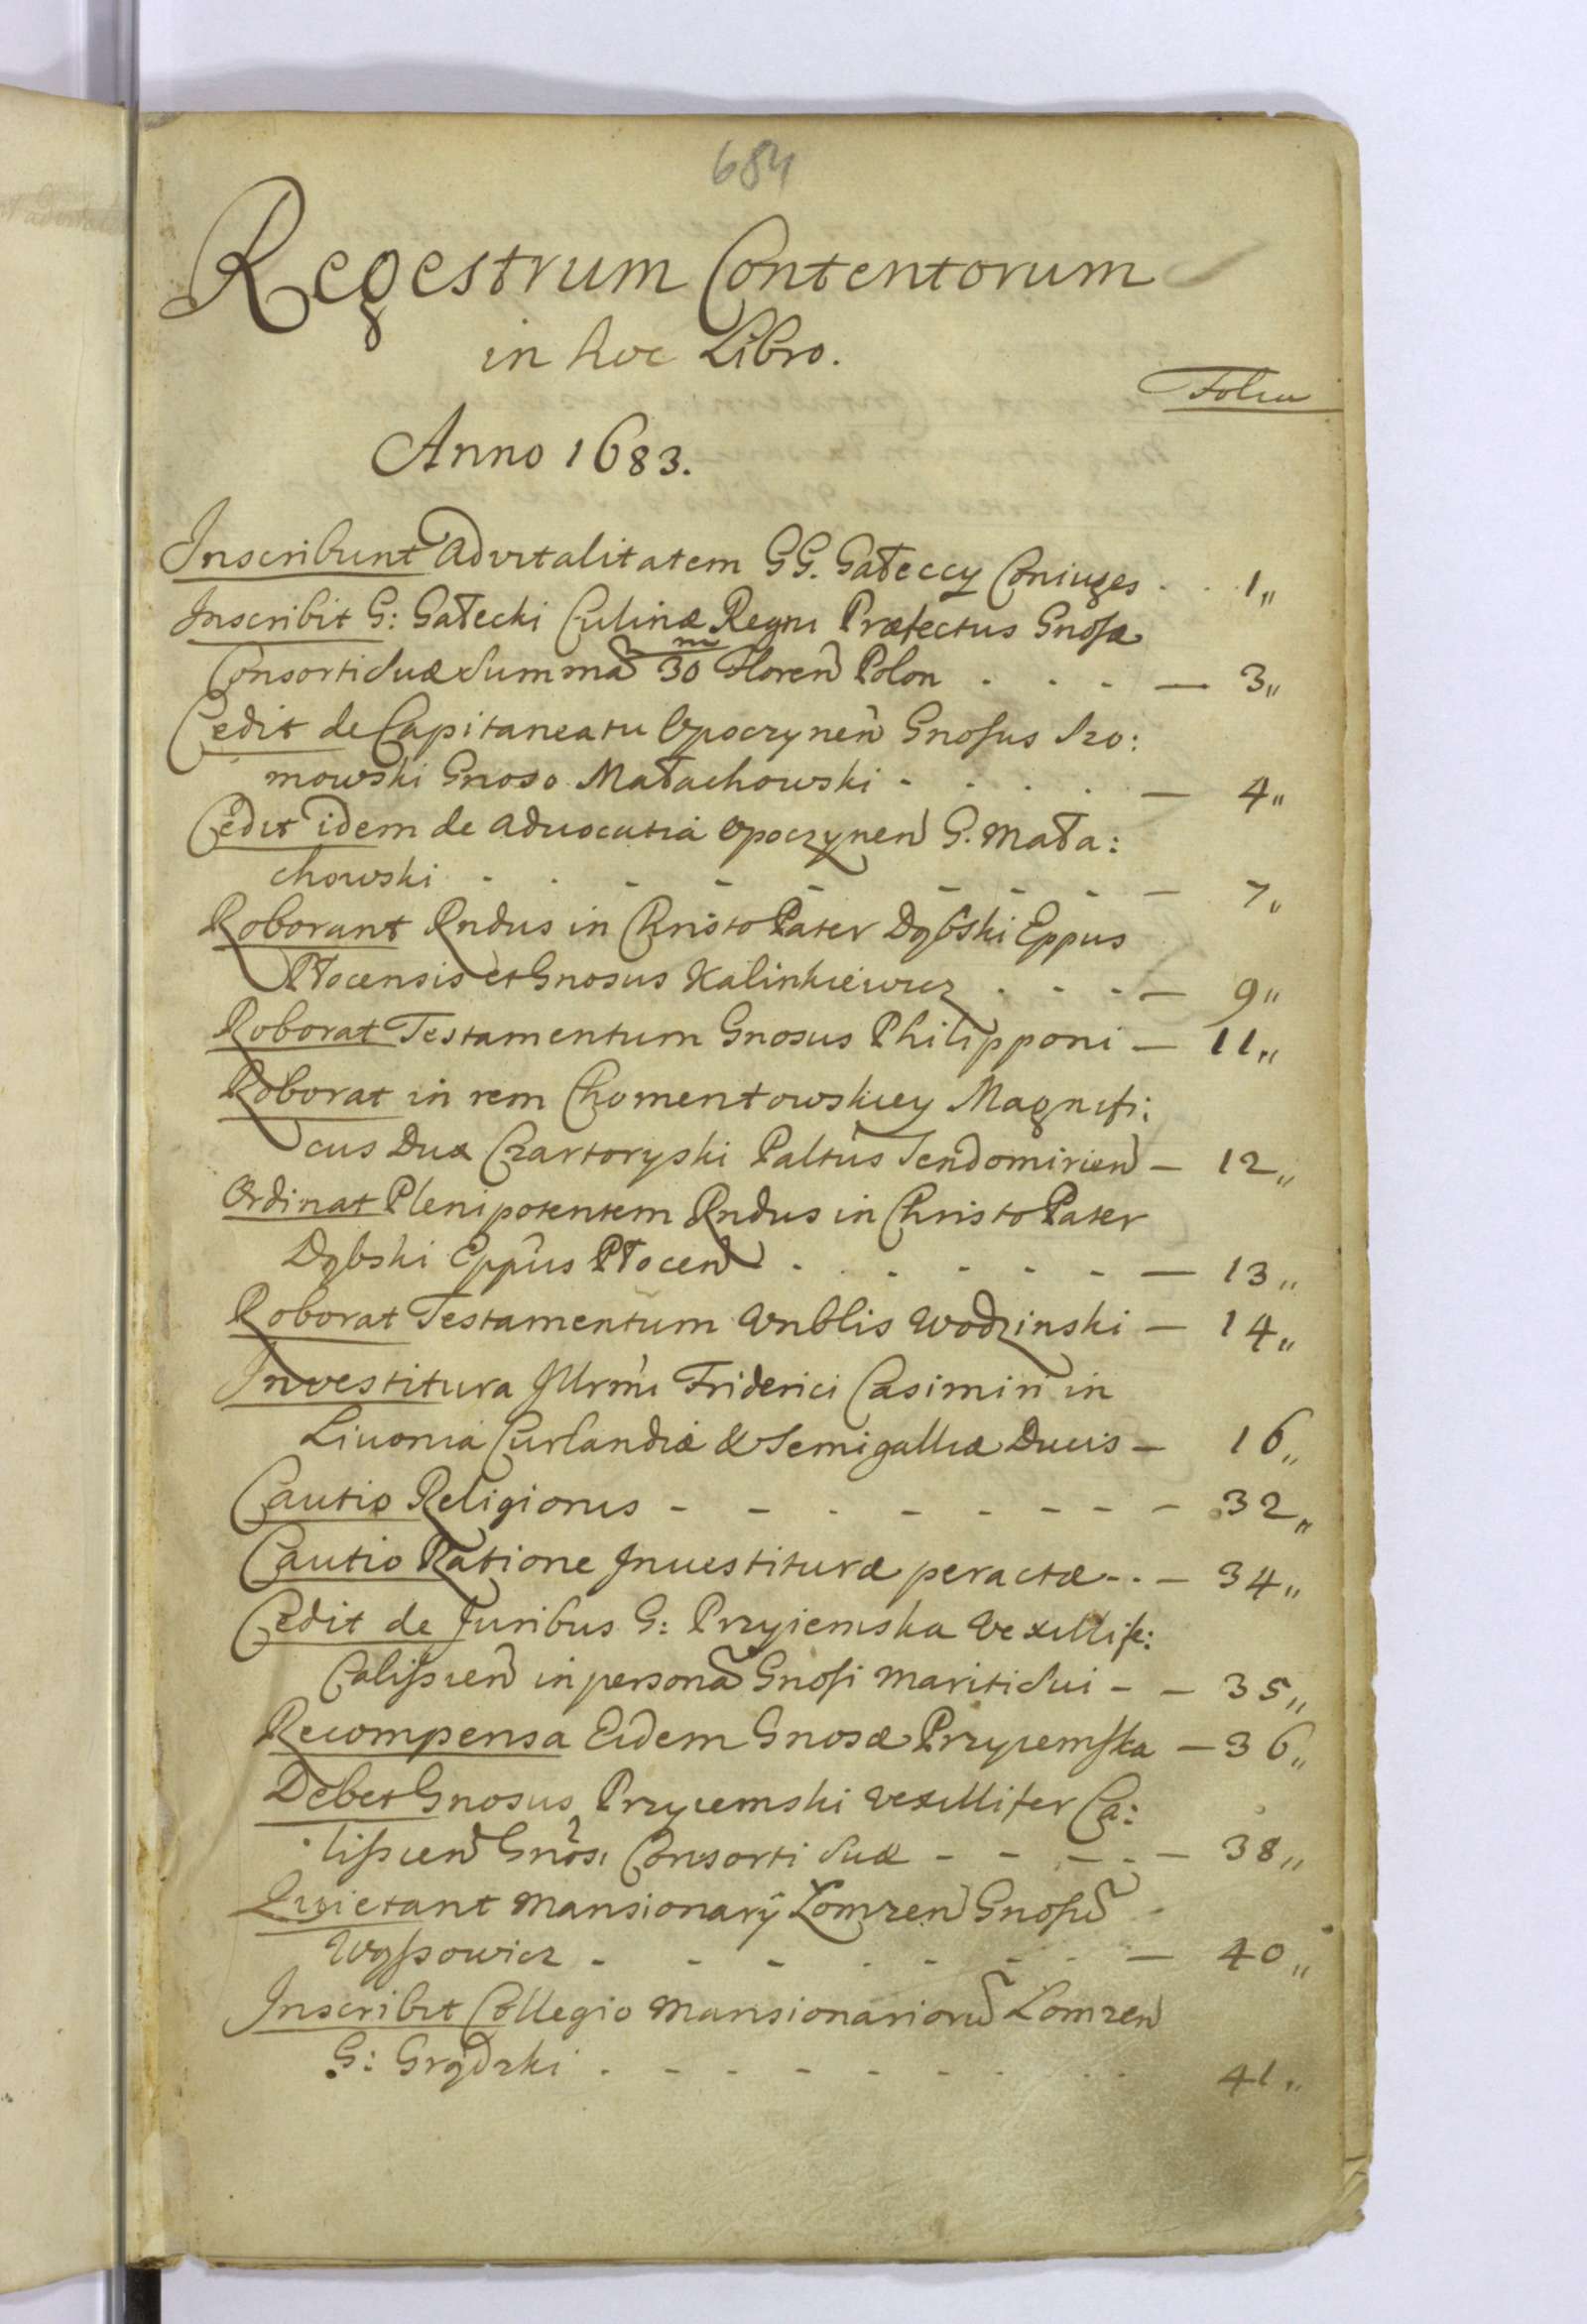 684
Regestrum Contentorum
in hoc Libro.
Folia
Anno 1683.
Inscribunt Advitalitatem GG. Gałeccy Coniuges . . 1„
Inscribit G: Gałecki Culinæ Regni Præfectus Gnosæ
Consorti suæ summã 30 m Floren Polon . . . — 3„
Cedit de Capitaneatu Opocznen Gnosus Szo:
mowski Gnoso Małachowski - . . . . — 4„
Cedit idem de advocatia Opocznen G. Mała:
chowski - . - - - - - - — 7„
Roborant Rndus in Christo Pater Dąbski Eppus
Płocensis et Gnosus Kalinkiewicz . . . — 9„
Roborat Testamentum Gnosus Philipponi — 11„
Roborat in rem Chomentowskiey Magnifi:
cus Dux Czartoryski Paltus Sendomirien — 12„
Ordinat Plenipotentem Rndus in Christo Pater
Dąbski Eppus Płocen . . . - - - — 13„
Roborat Testamentum Vnblis Wodzinski — 14„
Investitura Jllrmi Friderici Casimiri in
Livonia Curlandiæ & Semigalliæ Ducis — 16„
Cautio Religionis - - - - - - - - 32„
Cautio Ratione Jnuestituræ peractæ - . — 34„
Cedit de Juribus G: Przyiemska Vexillife:
Calissien in personã Gnosi mariti sui - — 35„
Recompensa Eidem Gnosæ Przyiemska — 36„
Debet Gnosus Przyiemski Vexillifer Ca:
lissien Gnosæ Consorti suæ - - - - — 38„
Quietant Mansionarÿ Łomzen Gnosũ
Wyssowicz - - - . - - - — 40„
Inscribit Collegio Mansionariorũ Lomzen
G: Grądzki . - - - - - - . . 41„